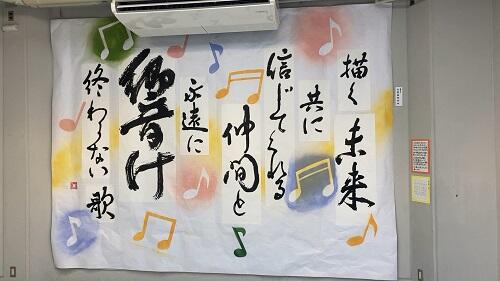 描く未来
共に
信じてくれる
仲間と
永遠に
響け
終わらない歌